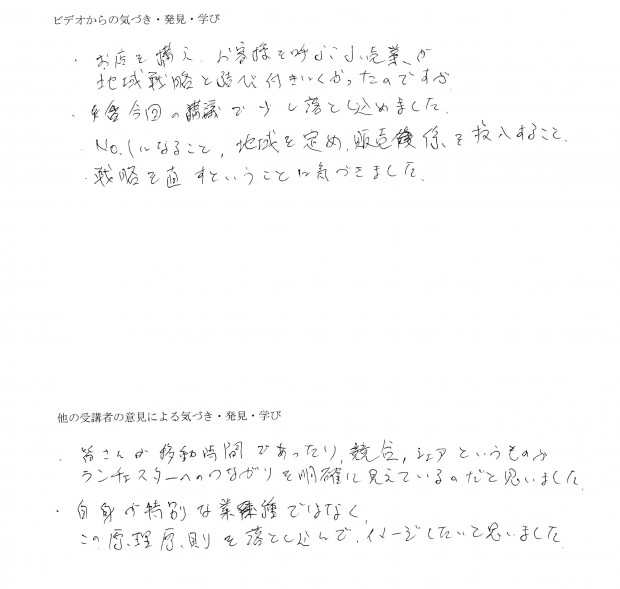 ビデオからの気づき・発見・学び
・お店を構え、お客様を呼ぶ小売業が
地域戦略と結び付きにくかったのですが
・今回の講議で少し落とし込めました。
・No.1になること、地域を定め、販売係を投入すること、
・戦略を直すということに気づきました。
他の受講者の意見による気づき・発見・学び
・皆さんが移動時間であったり、競合、シェアというものが
ランチェスターへのつながりを明確に見えているのだと思いました。
・自身が特別な業種ではなく、
この原理原則を落とし込んで、イメージしたいと思いました。